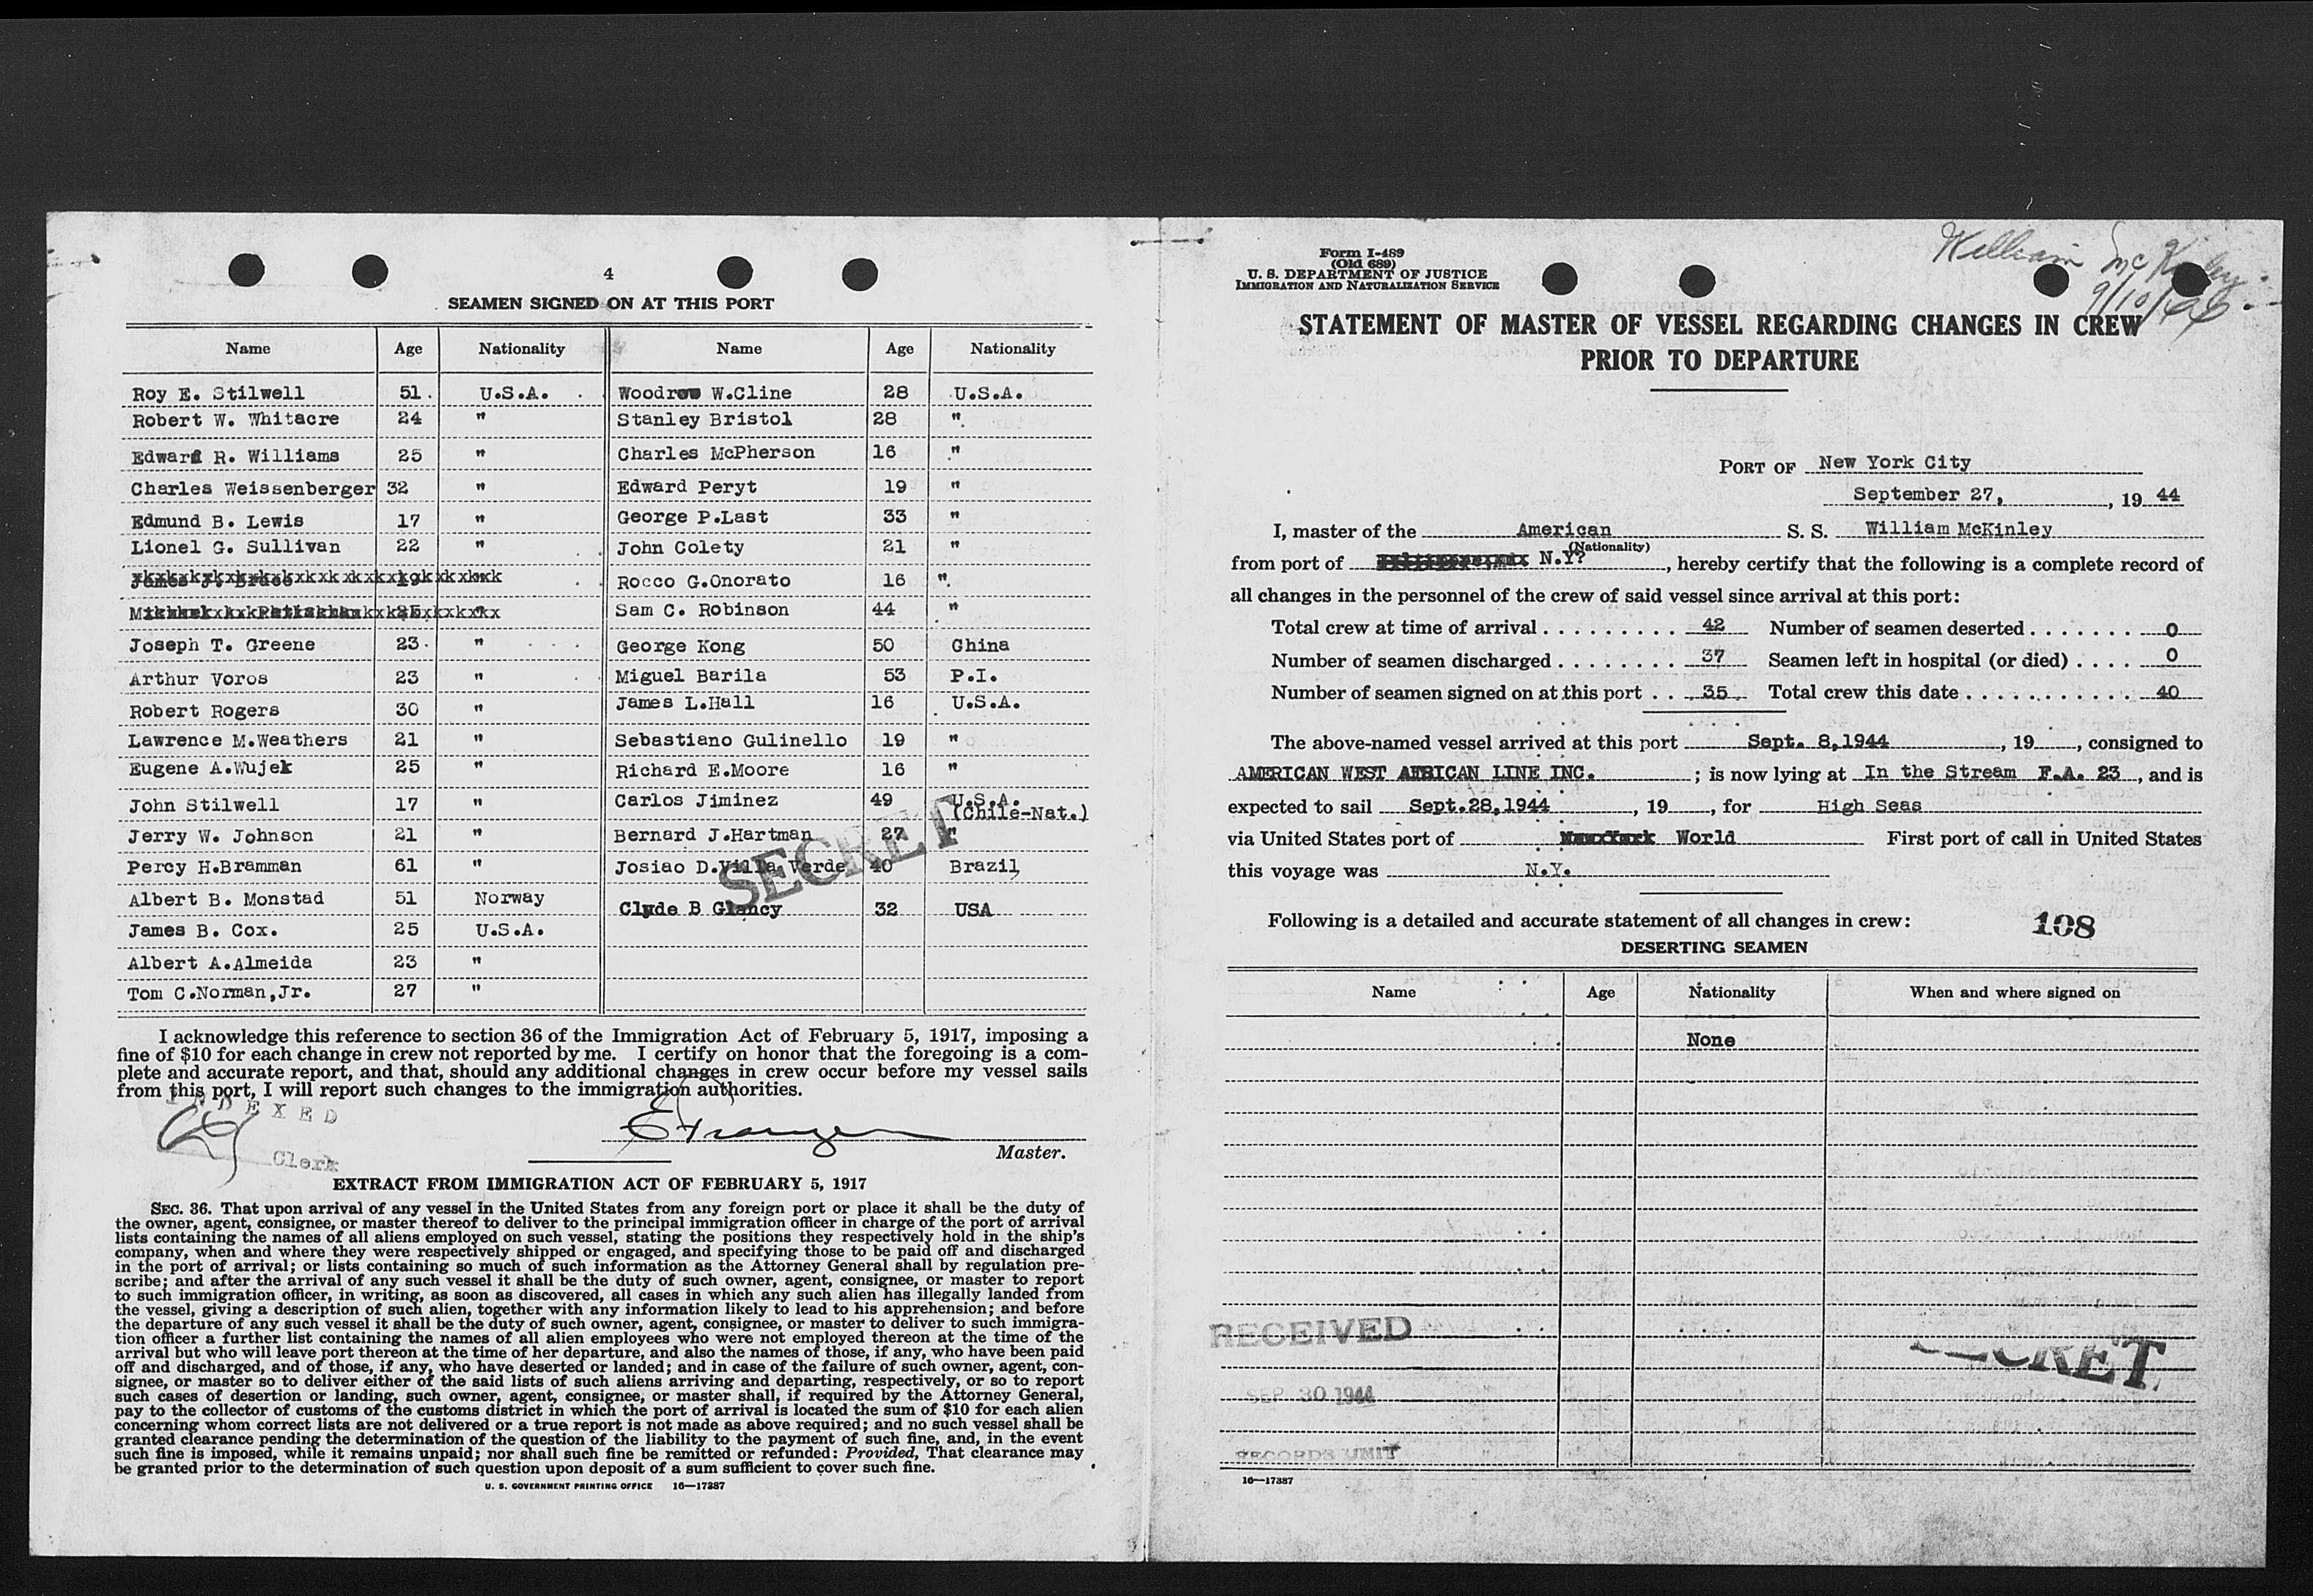 4
SEAMEN SIGNED ON AT THIS PORT
Name Age Nationality Name Age Nationality
Roy E. Stilwell 51. U.S.A. Woodrow W.Cline 28 U.S.A.
Robert W. Whitacre 24 " Stanley Bristol 28 "
Edward R. Williams 25 " Charles McPherson 16 "
Charles Weissenberger 32 " Edward Peryt 19 "
Edmund B. Lewis 17 " George P.Last 33 "
Lionel G. Sullivan 22 " John Colety 21 "
Rocco G.Onorato 16 "
Sam C. Robinson 44 "
Joseph T. Greene 23 " George Kong 50 China
Arthur Voros 23 " Miguel Barila 53 P.I.
Robert Rogers 30 " James L.Hall 16 U.S.A.
Lawrence M.Weathers 21 " Sebastiano Gulinello 19 "
Eugene A.Wujek 25 " Richard E.Moore 16 "
John Stilwell 17 " Carlos Jiminez 49 U.S.A.
(Chile-Nat.)
Jerry W. Johnson 21 " Bernard J.Hartman 27 "
Percy H.Bramman 61 " Josiao D.Villa Verde 40 Brazil
SECRET
Albert B. Monstad 51 Norway Clyde B Glancy 32 USA
James B. Cox. 25 U.S.A.
Albert A.Almeida 23 "
Tom C.Norman,Jr. 27 "
I acknowledge this reference to section 36 of the Immigration Act of February 5, 1917, imposing a
fine of $10 for each change in crew not reported by me. I certify on honor that the foregoing is a com-
plete and accurate report, and that, should any additional changes in crew occur before my vessel sails
from this port, I will report such changes to the immigration authorities.
INDEXED
Clerk
Master.
EXTRACT FROM IMMIGRATION ACT OF FEBRUARY 5, 1917
SEC. 36. That upon arrival of any vessel in the United States from any foreign port or place it shall be the duty of
the owner, agent, consignee, or master thereof to deliver to the principal immigration officer in charge of the port of arrival
lists containing the names of all aliens employed on such vessel, stating the positions they respectively hold in the ship's
company, when and where they were respectively shipped or engaged, and specifying those to be paid off and discharged
in the port of arrival; or lists containing so much of such information as the Attorney General shall by regulation pre-
scribe; and after the arrival of any such vessel it shall be the duty of such owner, agent, consignee, or master to report
to such immigration officer, in writing, as soon as discovered, all cases in which any such alien has illegally landed from
the vessel, giving a description of such alien, together with any information likely to lead to his apprehension; and before
the departure of any such vessel it shall be the duty of such owner, agent, consignee, or master to deliver to such immigra-
tion officer a further list containing the names of all alien employees who were not employed thereon at the time of the
arrival but who will leave port thereon at the time of her departure, and also the names of those, if any, who have been paid
off and discharged, and of those, if any, who have deserted or landed; and in case of the failure of such owner, agent, con-
signee, or master so to deliver either of the said lists of such aliens arriving and departing, respectively, or so to report
such cases of desertion or landing, such owner, agent, consignee, or master shall, if required by the Attorney General,
pay to the collector of customs of the customs district in which the port of arrival is located the sum of $10 for each alien
concerning whom correct lists are not delivered or a true report is not made as above required; and no such vessel shall be
granted clearance pending the determination of the question of the liability to the payment of such fine, and, in the event
such fine is imposed, while it remains unpaid; nor shall such fine be remitted or refunded: Provided, That clearance may
be granted prior to the determination of such question upon deposit of a sum sufficient to cover such fine.
U. S. GOVERNMENT PRINTING OFFICE 16—17387
Form I-489
(Old 689)
U. S. DEPARTMENT OF JUSTICE
IMMIGRATION AND NATURALIZATION SERVICE
William McKinley
STATEMENT OF MASTER OF VESSEL REGARDING CHANGES IN CREW
PRIOR TO DEPARTURE
PORT OF New York City
September 27, , 19 44
I, master of the American S. S. William McKinley
(Nationality)
from port of N.Y? , hereby certify that the following is a complete record of
all changes in the personnel of the crew of said vessel since arrival at this port:
Total crew at time of arrival . . . . . . . . . 42 Number of seamen deserted . . . . . . . 0
Number of seamen discharged . . . . . . . . 37 Seamen left in hospital (or died) . . . . 0
Number of seamen signed on at this port . . 35 Total crew this date . . . . . . . . . . . . 40
The above-named vessel arrived at this port Sept. 8,1944 , 19 , consigned to
AMERICAN WEST AFRICAN LINE INC. ; is now lying at In the Stream F.A. 23 , and is
expected to sail Sept.28,1944 , 19 , for High Seas
via United States port of World First port of call in United States
this voyage was N.Y.
Following is a detailed and accurate statement of all changes in crew:
108
DESERTING SEAMEN
Name Age Nationality When and where signed on
None
RECEIVED
SECRET
SEP 30 1944
RECORDS UNIT
16—17387